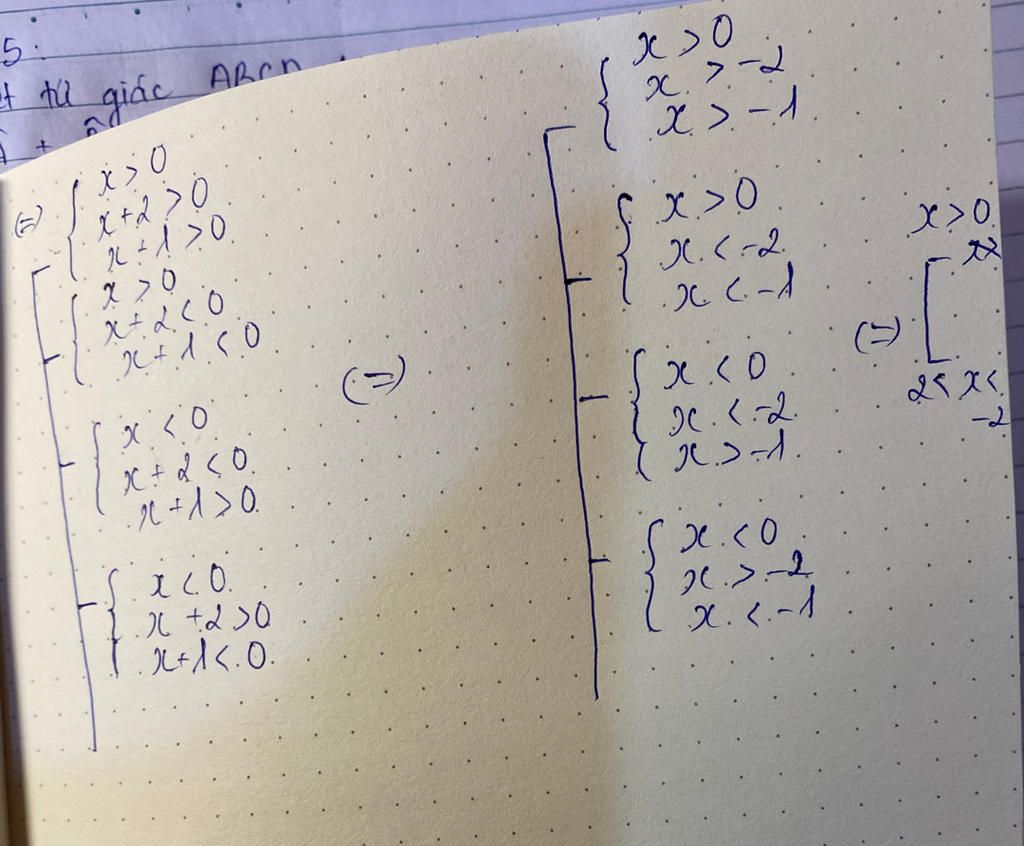 5.
tứ giác ABCD
+
(=) { x > 0
x + 2 > 0
x + 1 > 0
{ x > 0
x + 2 < 0
x + 1 < 0
{ x < 0
x + 2 < 0
x + 1 > 0
{ x < 0
x + 2 > 0
x + 1 < 0
(=)
{ x > 0
x > -2
x > -1
{ x > 0
x < -2
x < -1
{ x < 0
x < -2
x > -1
{ x < 0
x > -2
x < -1
(=) [ x > 0
2 < x <
-2